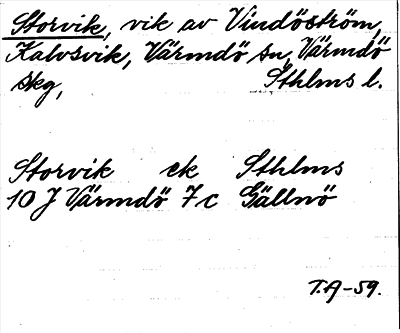 Storvik, vik av Vindöström,
Kalvsvik, Värmdö sn, Värmdö
skg, Sthlms l.
Storvik ek Sthlms
10 J Värmdö 7c Gällnö
T.A-59.